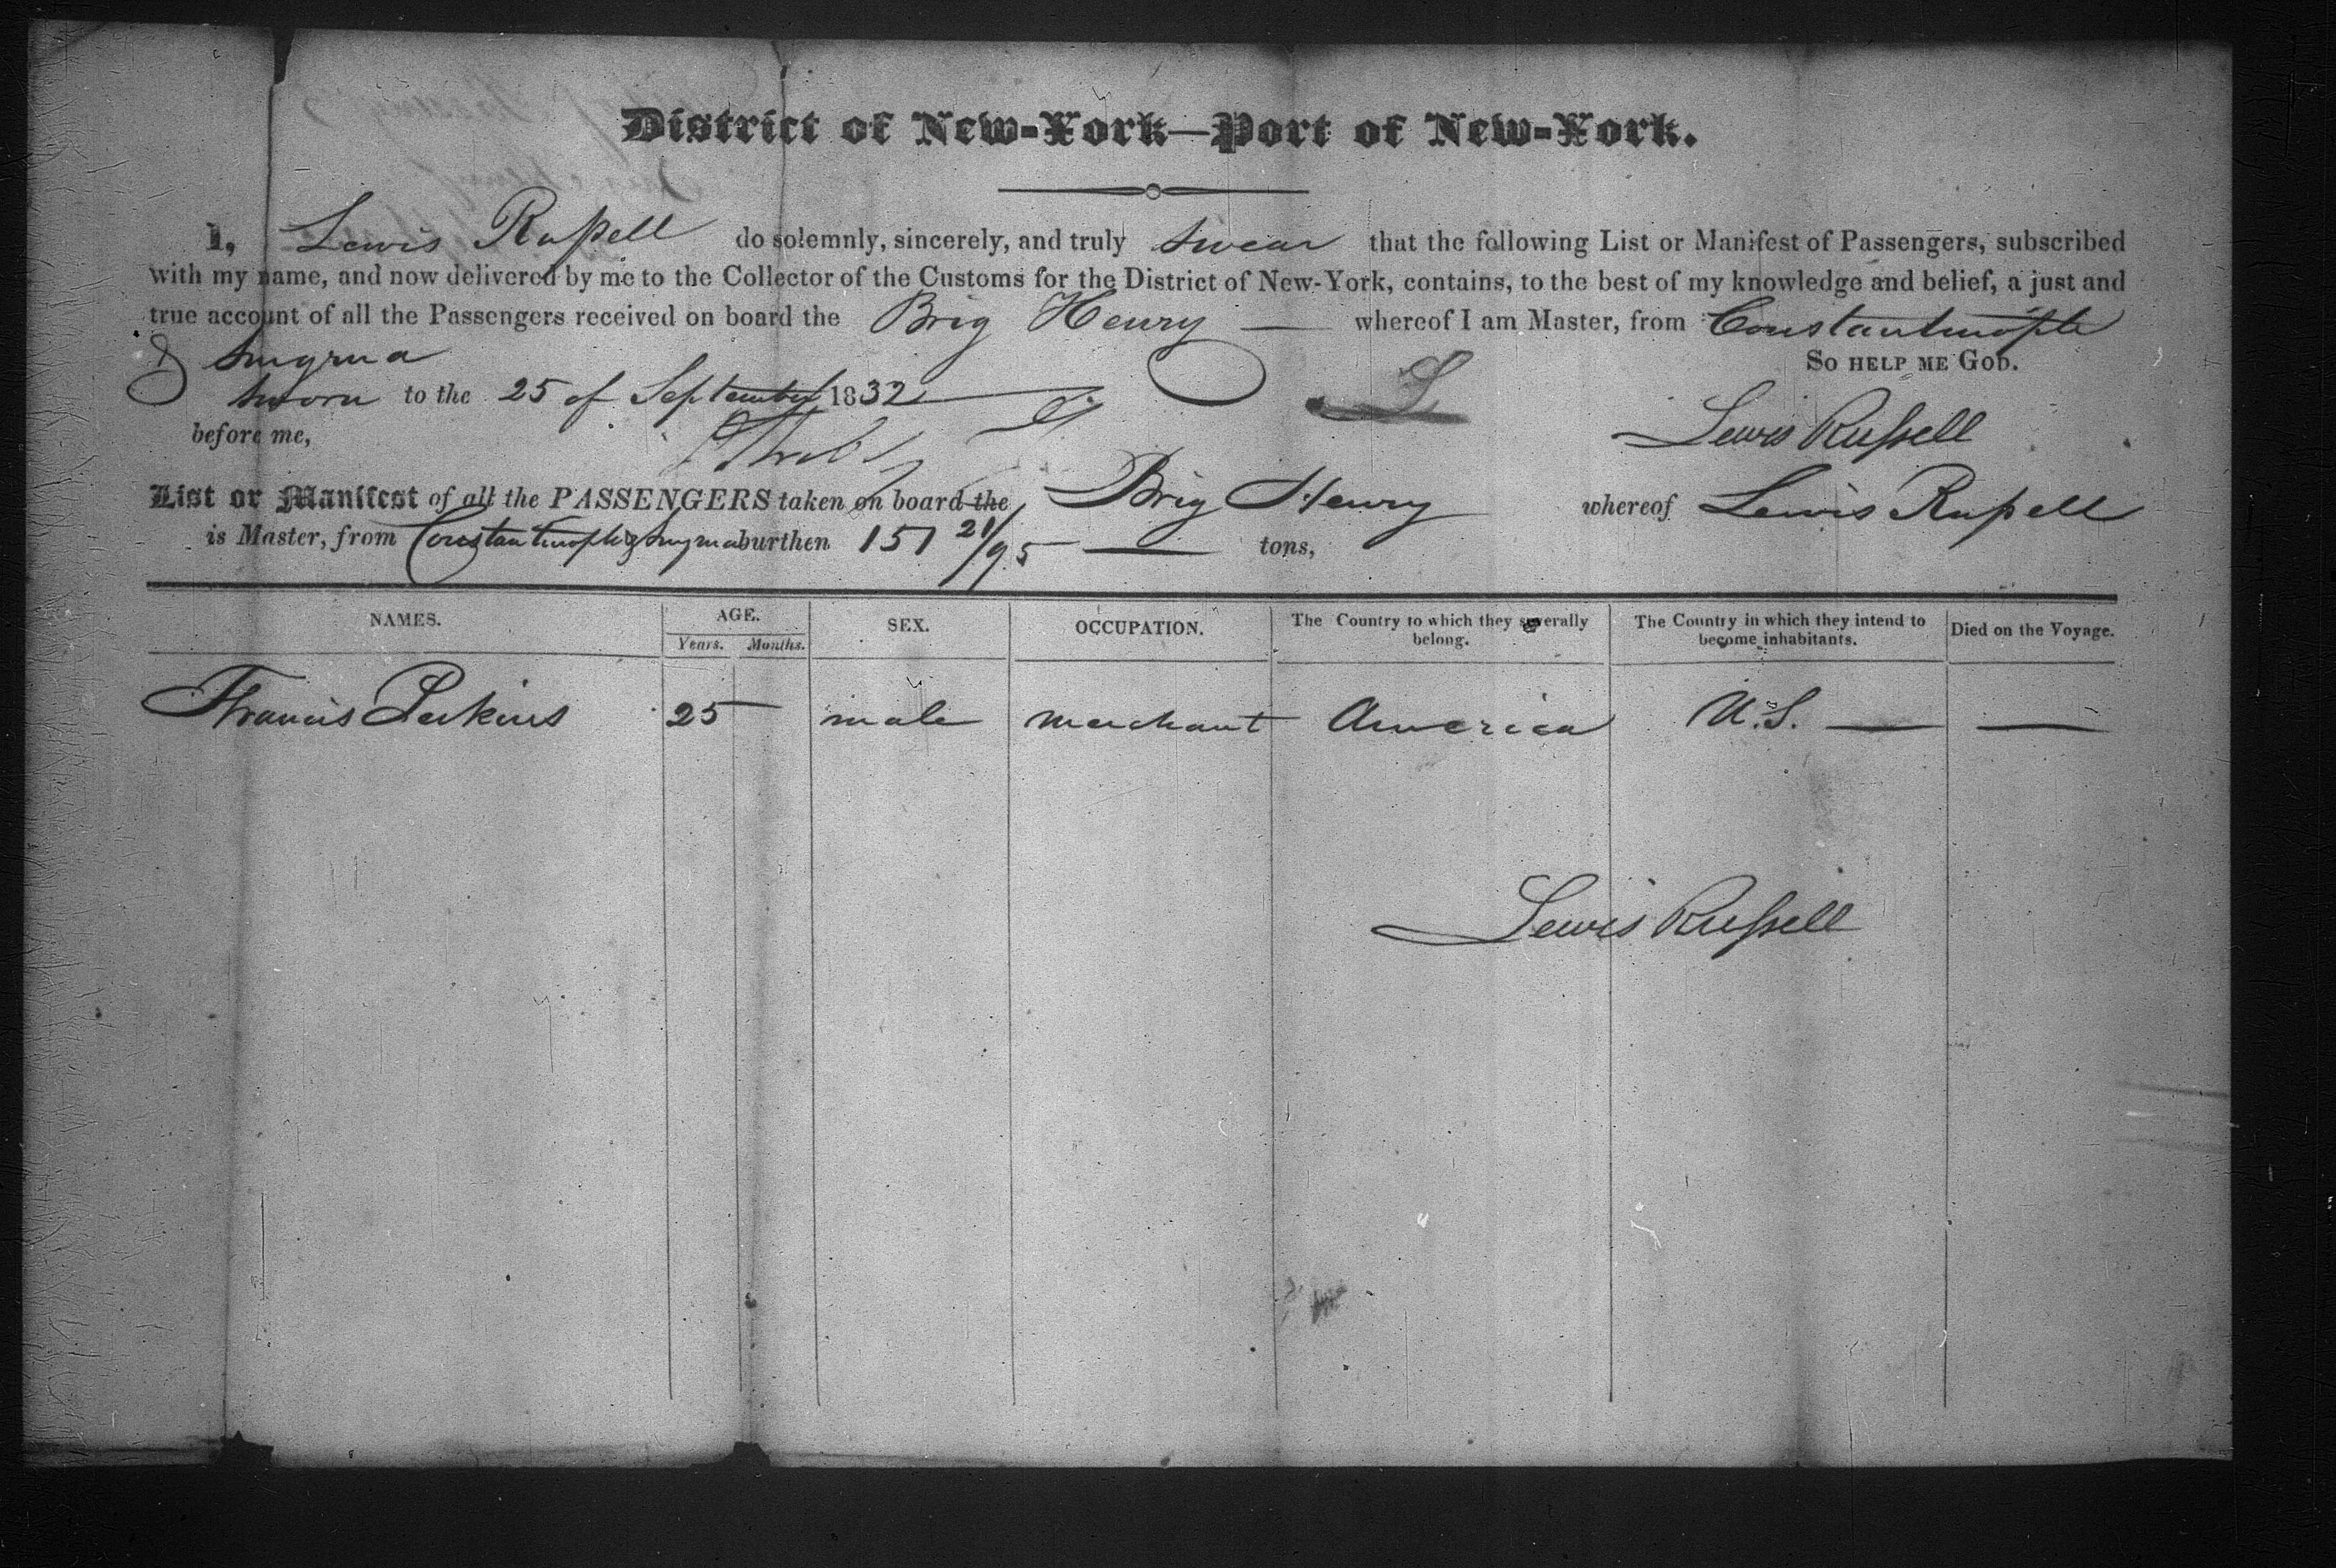 District of New-York—Port of New-York.
I, Lewis Russell do solemnly, sincerely, and truly swear that the following List or Manifest of Passengers, subscribed
with my name, and now delivered by me to the Collector of the Customs for the District of New-York, contains, to the best of my knowledge and belief, a just and
true account of all the Passengers received on board the Brig Henry — whereof I am Master, from Constantinople
& Smyrna
So help me God.
Sworn to the 25 of September 1832
before me,
Lewis Russell
List or Manifest of all the PASSENGERS taken on board the Brig Henry whereof Lewis Russell
is Master, from Constantinople & Smyrna burthen 151 21/95 — tons,
NAMES. AGE. SEX. OCCUPATION. The Country to which they severally belong. The Country in which they intend to become inhabitants. Died on the Voyage.
Years. Months.
Francis Perkins 25 — male merchant America U.S. — —
Lewis Russell